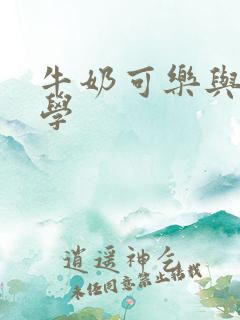 牛奶可樂與
學
逍遥神仙
未经同意禁止转载